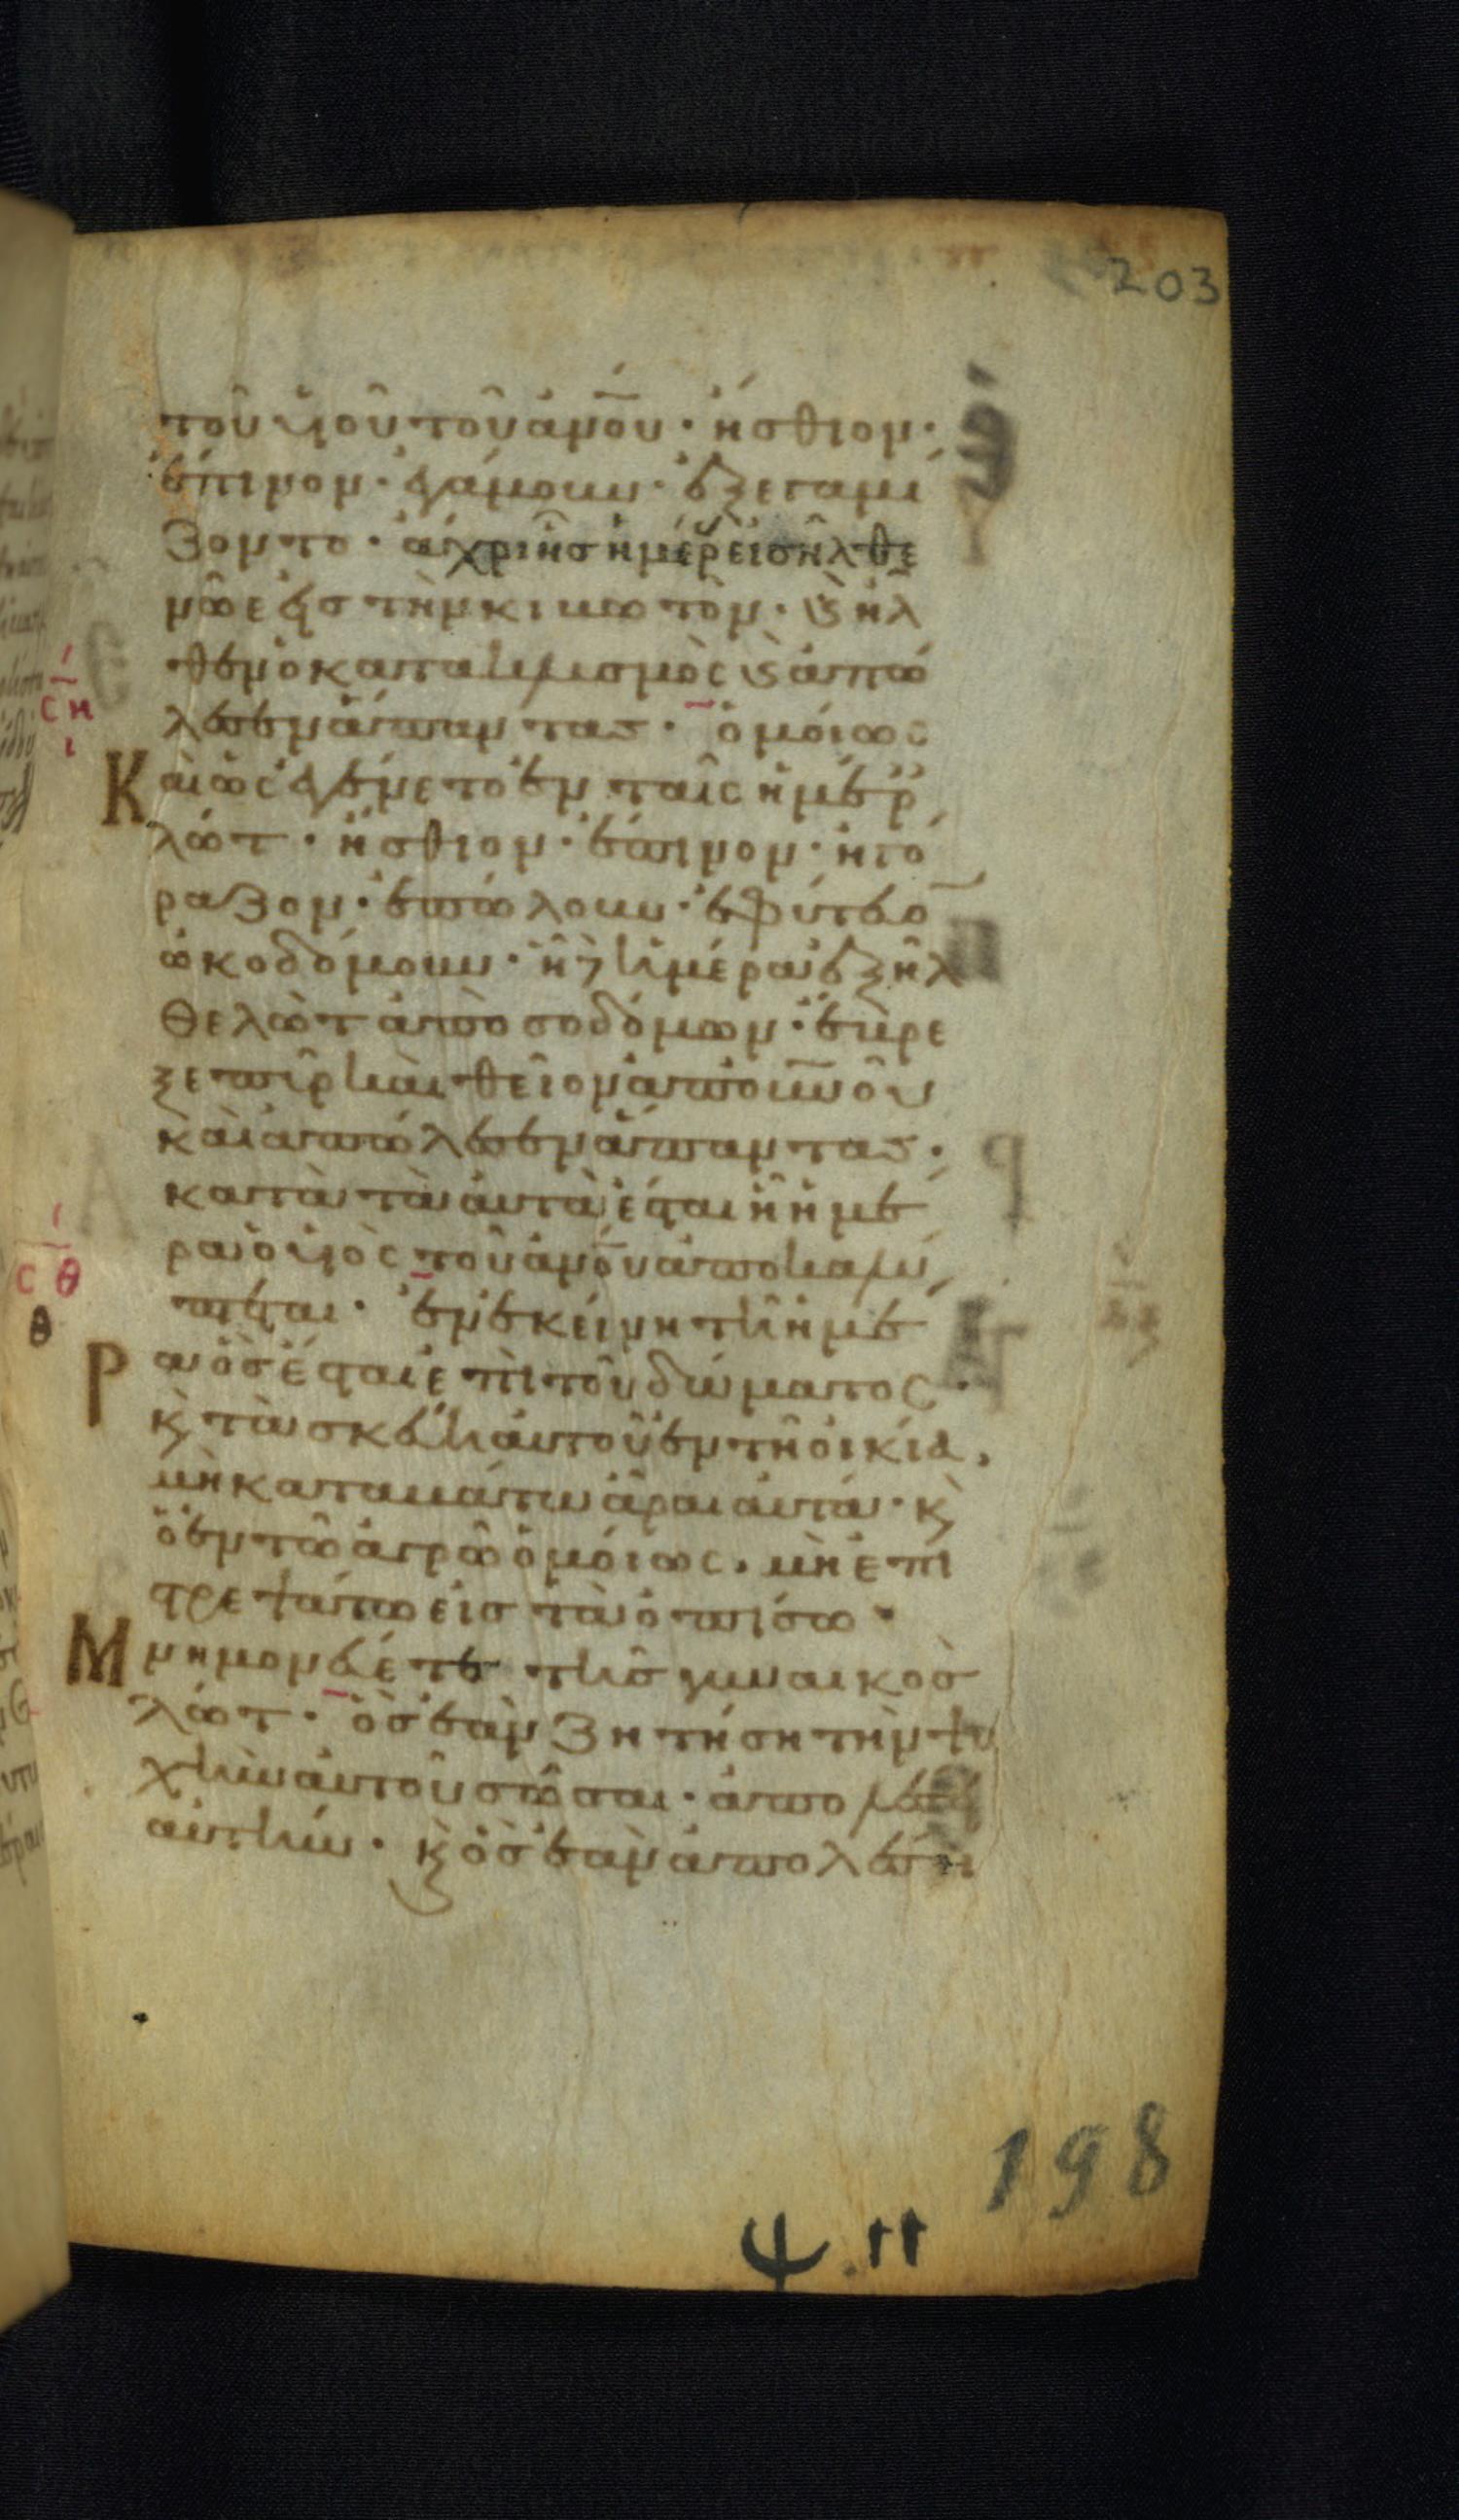 203
τοῦ υἱοῦ τοῦ ἀν̅ου· ἤσθιον·
ἔπινον· ἐγάμουν· ἐξεγαμί
ζοντο· ἄχρι ἧς ἡμέρ εἰσῆλθε
νῶε εἰς τὴν κιβωτὸν· κ̀ ἦλ
θεν ὁ κατακλυσμὸς κ̀ ἀπώ
λεσεν ἅπαντας· ὁμοίως
Καὶ ὡς ἐγένετο ἐν ταῖς ἡμέρ
λώτ· ἤσθιον· ἔπινον· ἠγό
ραζον· ἐπώλουν· ἐφύτευο̅
ὠκοδόμουν· ἧ δὲ ἡμέρα ἐξῆλ
θε λὼτ ἀπὸ σοδόμων· ἔβρε
ξε πῦρ καὶ θεῖον ἀπ' οὐν̅οῦ
καὶ ἀπώλεσεν ἅπαντας·
κατὰ τὰ αὐτὰ ἔσται ἧ ἡμέ
ρα ὁ υἱὸς τοῦ ἀν̅ου ἀποκαλύ
πτεται· ἐν ἐκείνη τῆ ἡμέ
Ρα ὃς ἔσται ἐπὶ τοῦ δώματος·
κ̀ τὰ σκεύη αὐτοῦ ἐν τῆ οἰκία,
μὴ καταβάτω ἆραι αὐτά· κ̀
ὁ ἐν τῶ ἀγρῶ ὁμοίως, μὴ ἐπι
στρεψάτω εἰς τὰ ὀπίσω·
Μνημονεύετε τῆς γυναικὸς
λώτ· ὃς ἐὰν ζητήση τὴν ψυ
χὴν αὐτοῦ σῶσαι· ἀπολέσει
αὐτήν· κ̀ ὃς ἐὰν ἀπολέση
ση
ι
σθ
θ
198
ψ.11